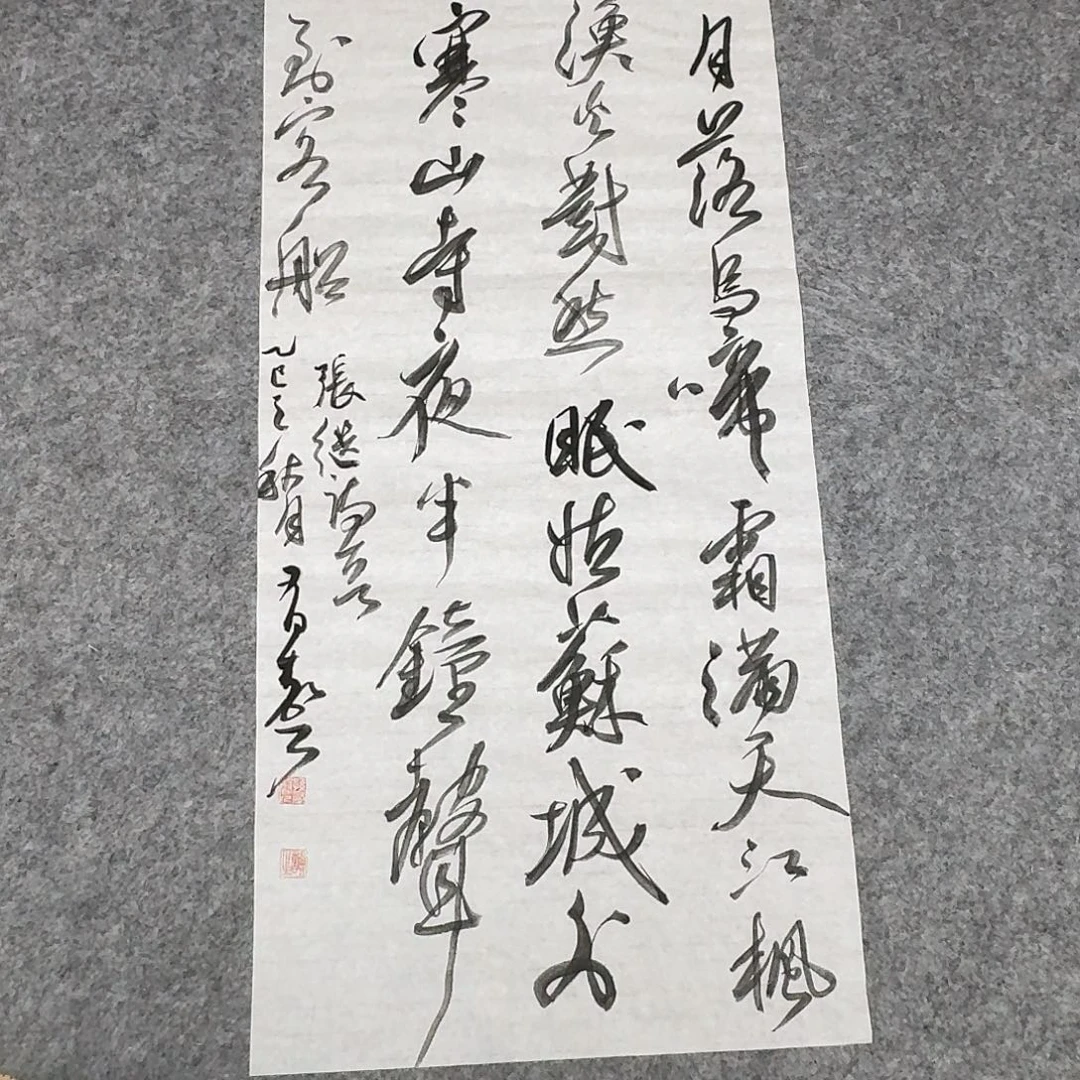 月落烏啼霜滿天江楓
漁火對愁眠姑蘇城外
寒山寺夜半鐘聲
到客船
張継詩
乙巳之秋月